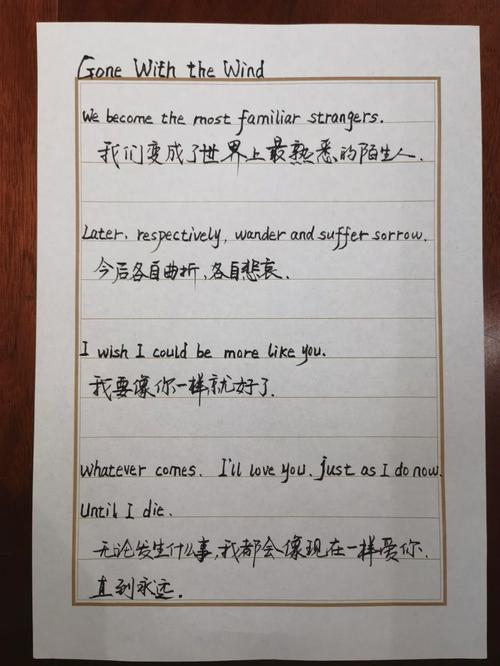 Gone With the Wind
We become the most familiar strangers.
我们变成了世界上最熟悉的陌生人.
Later, respectively, wander and suffer sorrow.
今后各自曲折,各自悲哀.
I wish I could be more like you.
我要像你一样就好了.
Whatever comes. I'll love you, just as I do now.
Until I die.
无论发生什么事,我都会像现在一样爱你.
直到永远.